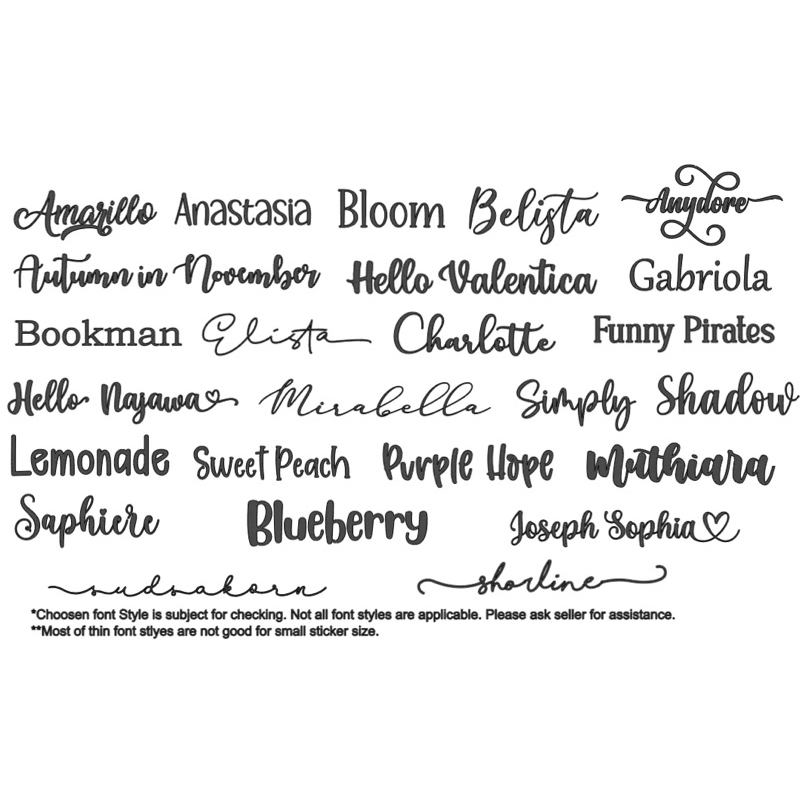 Amarillo Anastasia Bloom Belista Anydore
Autumn in November Hello Valentica Gabriola
Bookman Elista Charlotte Funny Pirates
Hello Najawa Mirabella Simply Shadow
Lemonade Sweet Peach Purple Hope Muthiara
Saphiere Blueberry Joseph Sophia
sudsakorn shorline
*Choosen font Style is subject for checking. Not all font styles are applicable. Please ask seller for assistance.
**Most of thin font stlyes are not good for small sticker size.